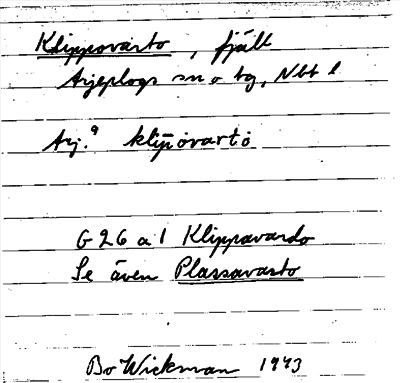 Klippovarto, fjäll
Arjeplogs sn o tg, Nbt l
Arj.ª klip̄ōvartō
G 26 a 1 Klippavardo
Se även Plassavarto
Bo Wickman 1943